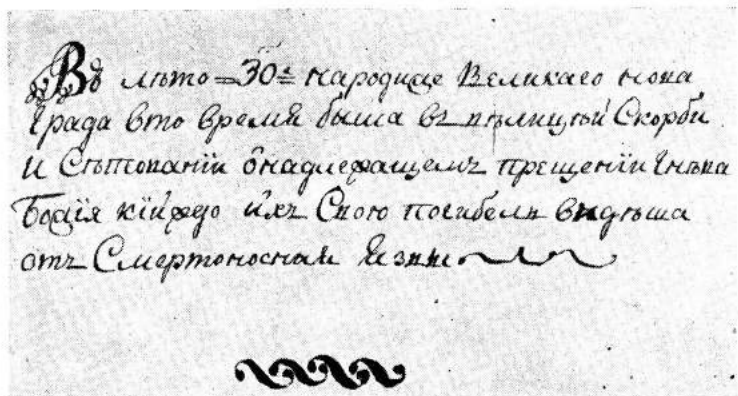 Въ лѣто =30= народиже Великаго нова
града вто время быша въ вѣлицѣй Скорби
и Сѣтованїи ѻнадлежащемъ прещенїи Гнѣва
Божїя кїйждо ихъ Свою погибель видѣша
отъ Смертоносныя язвы